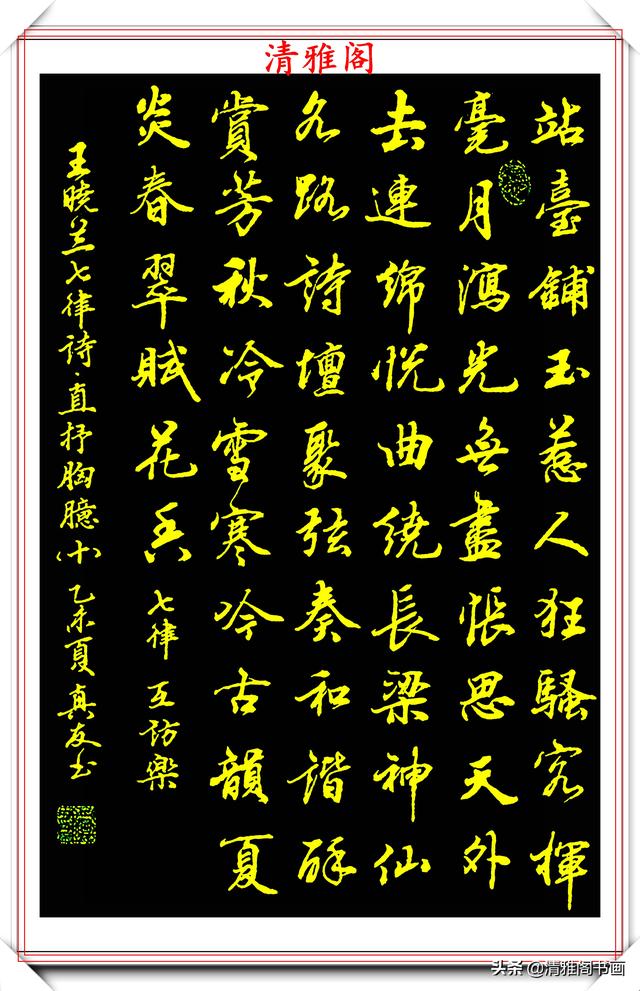 清雅阁
站臺鋪玉惹人狂騷客揮
毫月瀉光無盡悵思天外
去連綿悦曲繞長梁神仙
各路詩壇聚弦奏和諧酥
賞芳秋冷雪寒吟古韻夏
炎春翠賦花香七律互訪樂
王曉兰七律詩·直抒胸臆(十)乙未夏真友书
头条@清雅阁书画